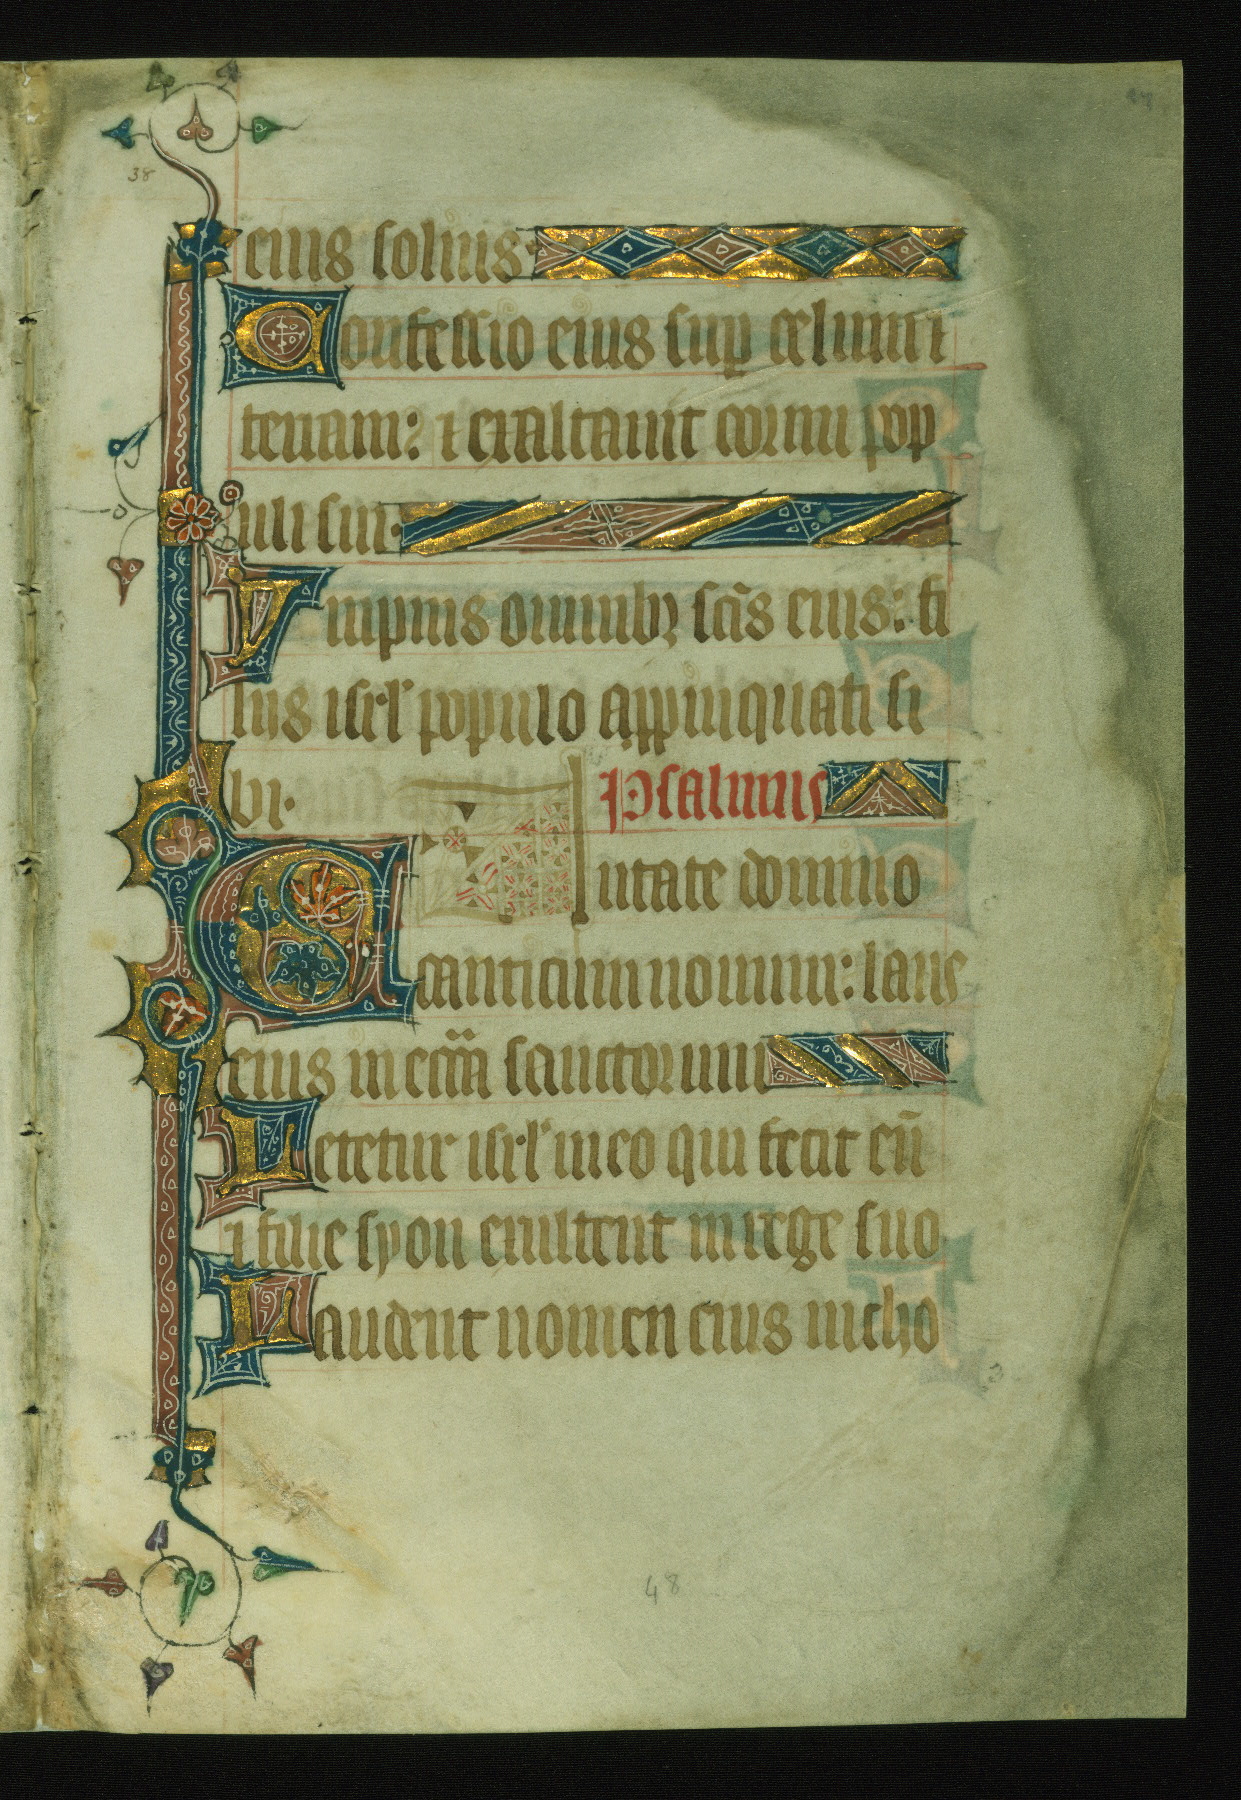 38
eius solius.
Confessio eius sup celum ⁊
terram: ⁊ exaltauit cornu pop
uli sui.
Impnis omnibꝫ scīs eius: fi
liis isrl' populo appinquati si
bi. Psalmus
Cantate domino
canticum nouum: laus
eius in eccīa sanctorum
Letetur isrl' in eo qui fecit eū
⁊ filie syon exultent in rege suo
Laudent nomen eius in cho
48